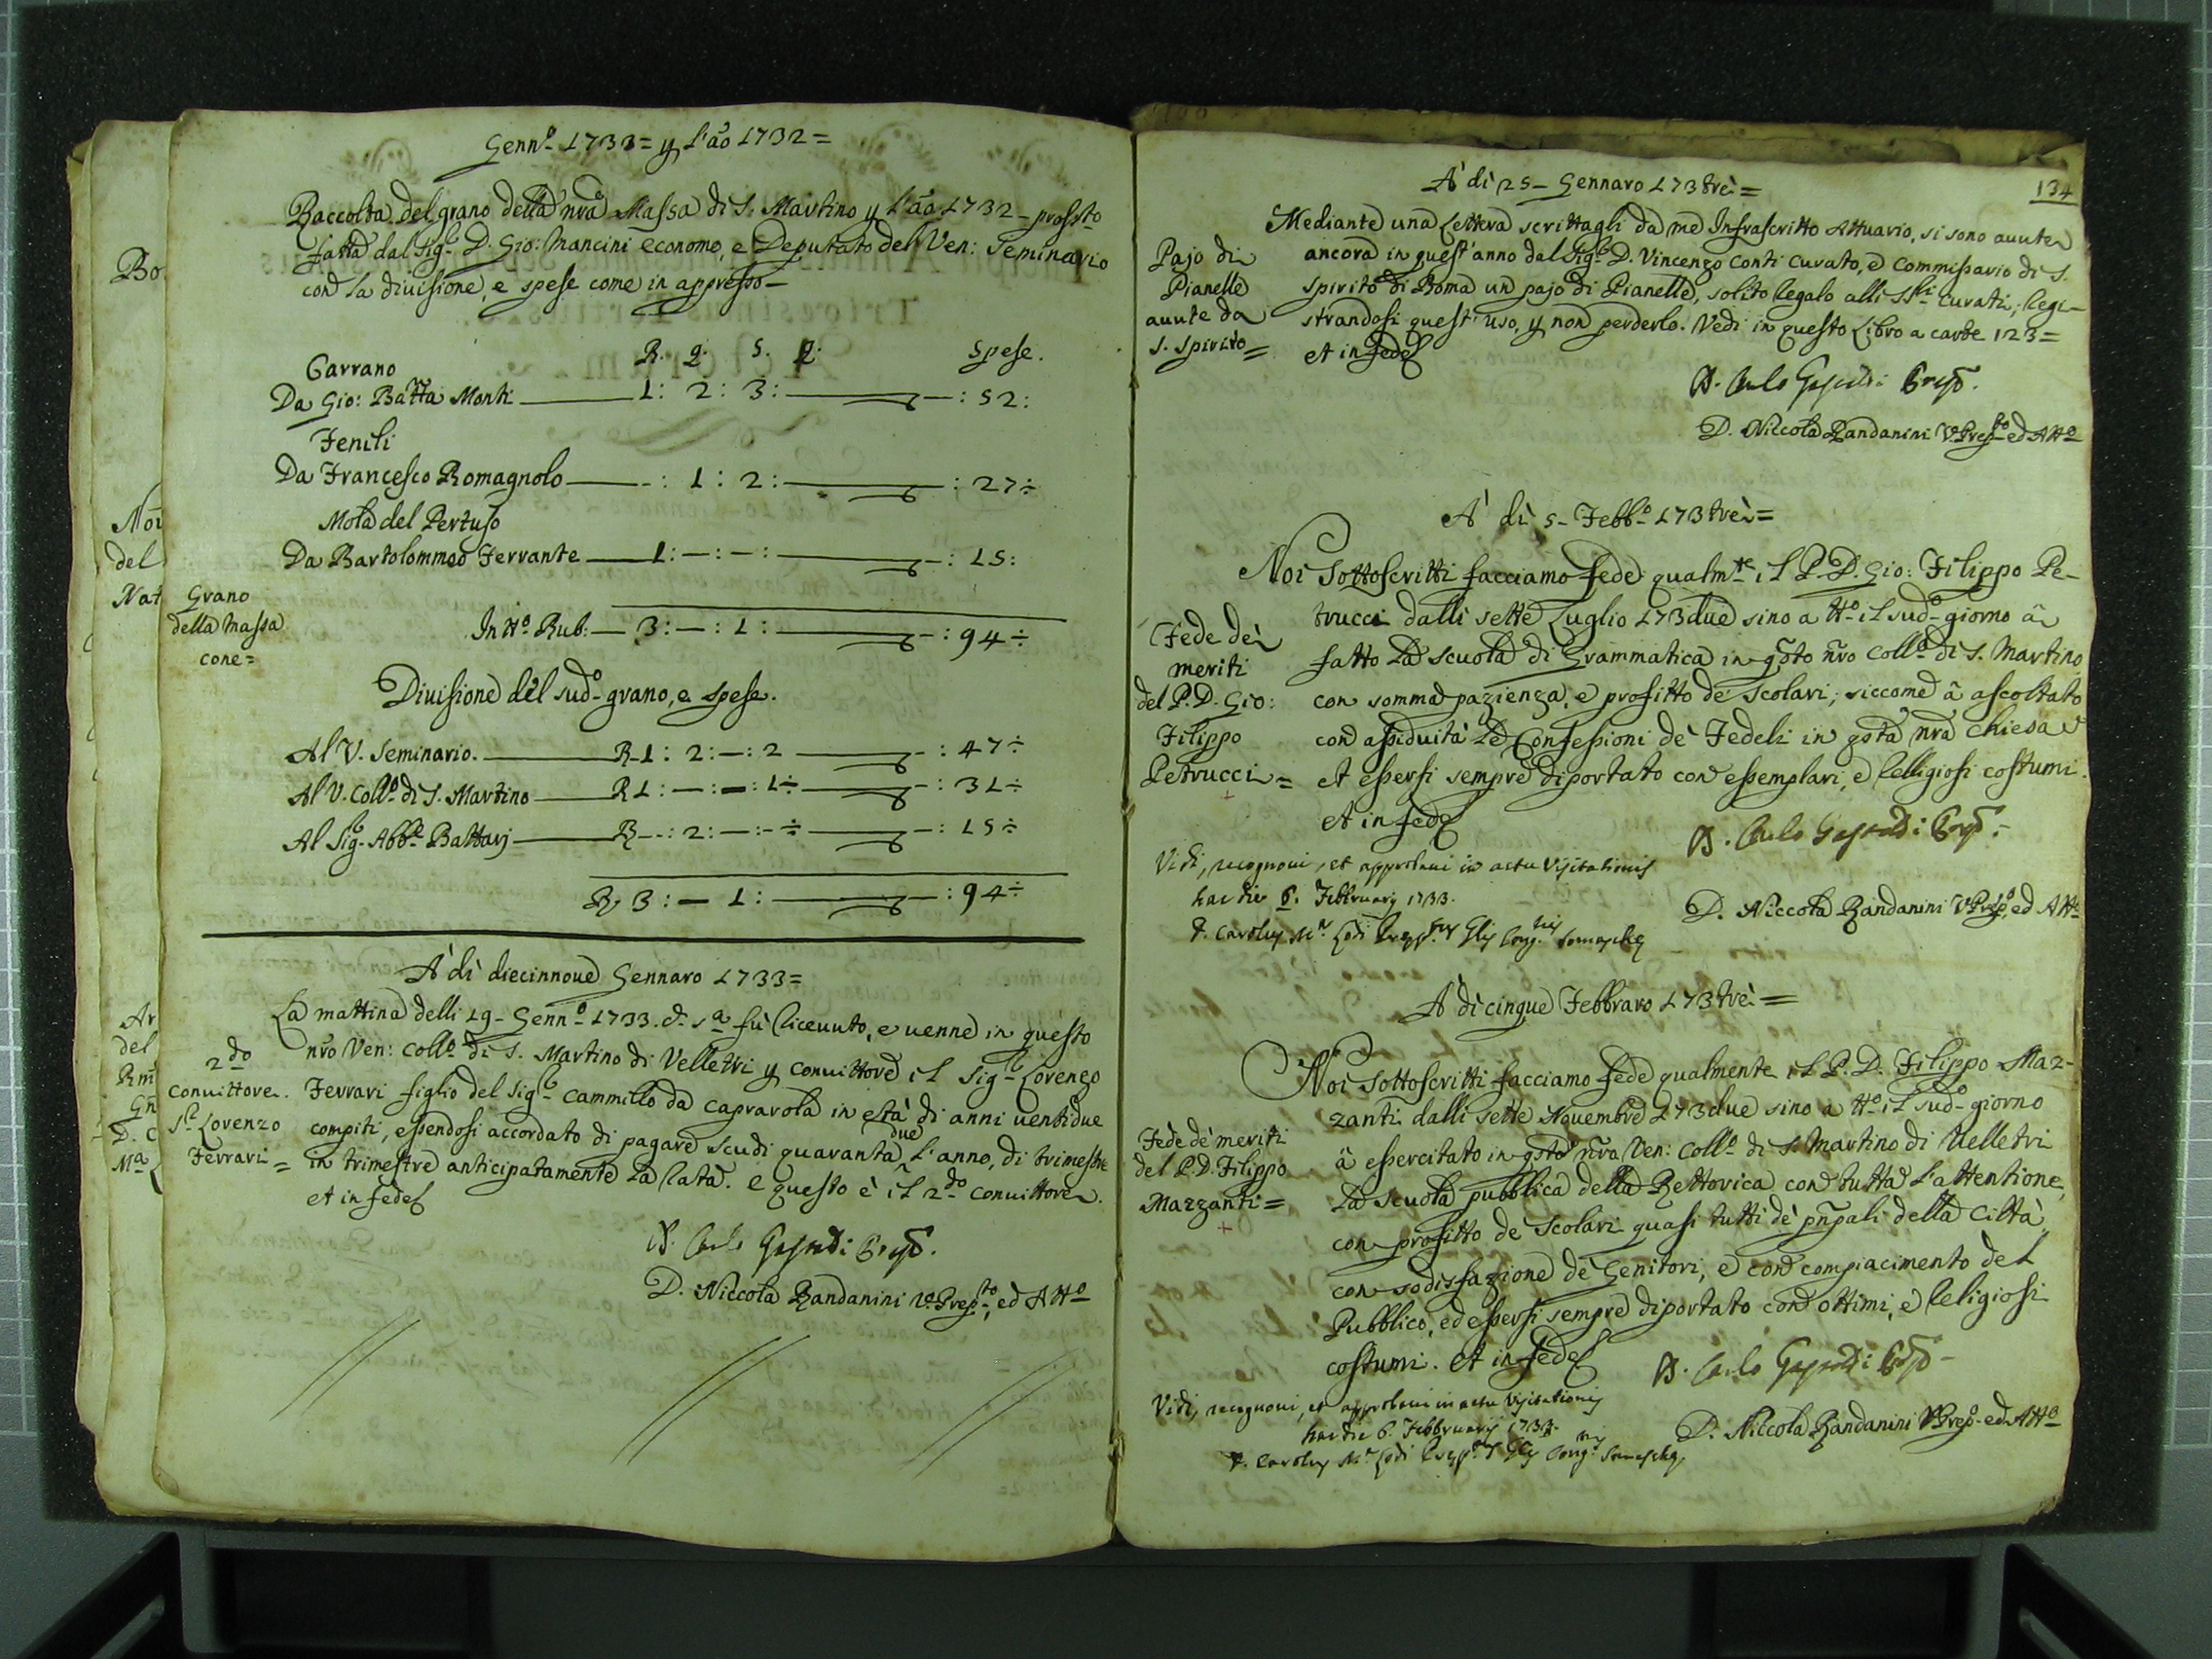 Genn.o 1733= p l'ãο 1732=
Raccolta del grano della nrã Massa di S. Martino p l'ão 1732 - prossto
fatta dal Sig.r D. Gio: Mancini economo, e Deputato del Ven: Seminario
con la divisione, e spese come in appresso-
R. q. S. q. Spese.
Carrano
Da Gio: Batta Monti 1: 2: 3: —: 52:
Fenili
Da Francesco Romagnolo --: 1: 2: —: 27÷
Mola del Pertuso
Da Bartolommeo Ferrante 1:—:—: —: 15:
Grano
della Massa
cone=
In tt.o Rub: — 3:—: 1: —: 94÷
Divisione del sud.o grano, e spese.
Al V. Seminario. R.1: 2:—: 2 —: 47÷
Al V. Coll.o di S. Martino R 1:—:—: 1÷ —: 31÷
Al Sig. Abb.e Battarj R--: 2:—:-÷ —: 15÷
R. 3:— 1: —: 94÷
À dì diecinnove Gennaro 1733=
2.do
Convittore.
S.r Lorenzo
Ferrari=
La mattina delli 19- Genn.o 1733. d. s.a fù ricevuto, e venne in questo
nrõ Ven: Coll.o di S. Martino di Velletri p convittore il Sig.r Lorenzo
Ferrari figlio del Sig.r Cammillo da Capravola in età di anni ventidue
compiti, essendosi accordato di pagare scudi quaranta due l'anno, di trimestre
in trimestre anticipatamente la rata. e questo è il 2.do convittore.
et in fede
D. Carlo Gaspardi Prep.o
D. Niccola Zandanini V.Prep.sto, ed Att.o
134
À dì 25- Gennaro 173trè=
Pajo di
Pianelle
avute da
S. Spirito=
Mediante una Lettera scrittagli da me Infrascritto Attuario, si sono avute
ancora in quest'anno dal Sig.r D. Vincenzo Conti Curato, e Commissario di S.
Spirito di Roma un pajo di Pianelle, solito regalo alli SS.ri Curati; regi-
strandosi quest'uso, p non perderlo. Vedi in questo Libro a carte 123=
et in fede
D. Carlo Gaspardi Prep.o
D. Niccola Zandanini V.Prep.to ed Att.o
À dì 5- Febb.o 173trè=
Fede de
meriti
del P. D. Gio:
Filippo
Petrucci=
Noi Sottoscritti facciamo fede qualm.te il P. D. Gio: Filippo Pe-
trucci dalli sette Luglio 173due sino a tt.o il sud.o giorno â
fatto la scuola di Grammatica in q̃sto ñro Coll.o di S. Martino
con somma pazienza, e profitto de' scolari; siccome â ascoltato
con assiduità le Confessioni de' Fedeli in q̃sta nrã Chiesa
et essersi sempre diportato con essemplari, e relligiosi costumi.
et in fede
D. Carlo Gaspardi Prep.o
Vidi, recognovi, et approbavi in actu Visitationis
hac die 6. Febbruarij 1733.
D. Niccola Zandanini V.Prep.o, ed Att.o
D. Carolus M.a Lodi Prepp.tus Glis Cong.nis Somaschę
À dì cinque Febbraro 173trè=
Fede de' meriti
del P. D. Filippo
Mazzanti=
Noi Sottoscritti facciamo fede qualmente il P. D. Filippo Maz-
zanti dalli sette Novembre 173due sino a tt.o il sud.o giorno
â essercitato in q̃sto ñro Ven: Coll.o di S. Martino di Velletri
la scuola pubblica della Rettorica con tutta l'attentione,
con profitto de' scolari quasi tutti de' pñpali della Città,
con sodisfazione de' Genitori, e con compiacimento del
Pubblico, ed essersi sempre diportato con ottimi, e religiosi
costumi. et in fede
D. Carlo Gaspardi Prep.o
Vidi, recognovi, et approbavi in actu Visitationis
hac die 6. Febbruarij 1733.
D. Niccola Zandanini V.Prep.o ed Att.o
D. Carolus M.a Lodi Prepp.tus Glis Cong.nis Somaschę